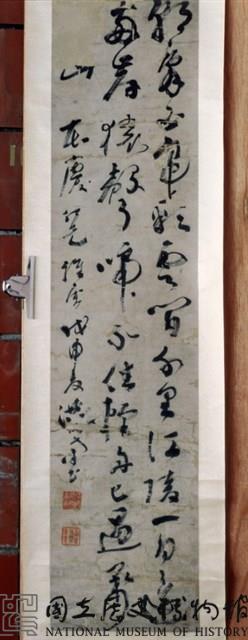 朝辭白帝彩雲間千里江陵一日還
兩岸猿聲啼不住輕舟已過萬重
山
戊申夏 書
國立歷史博物館
NATIONAL MUSEUM OF HISTORY